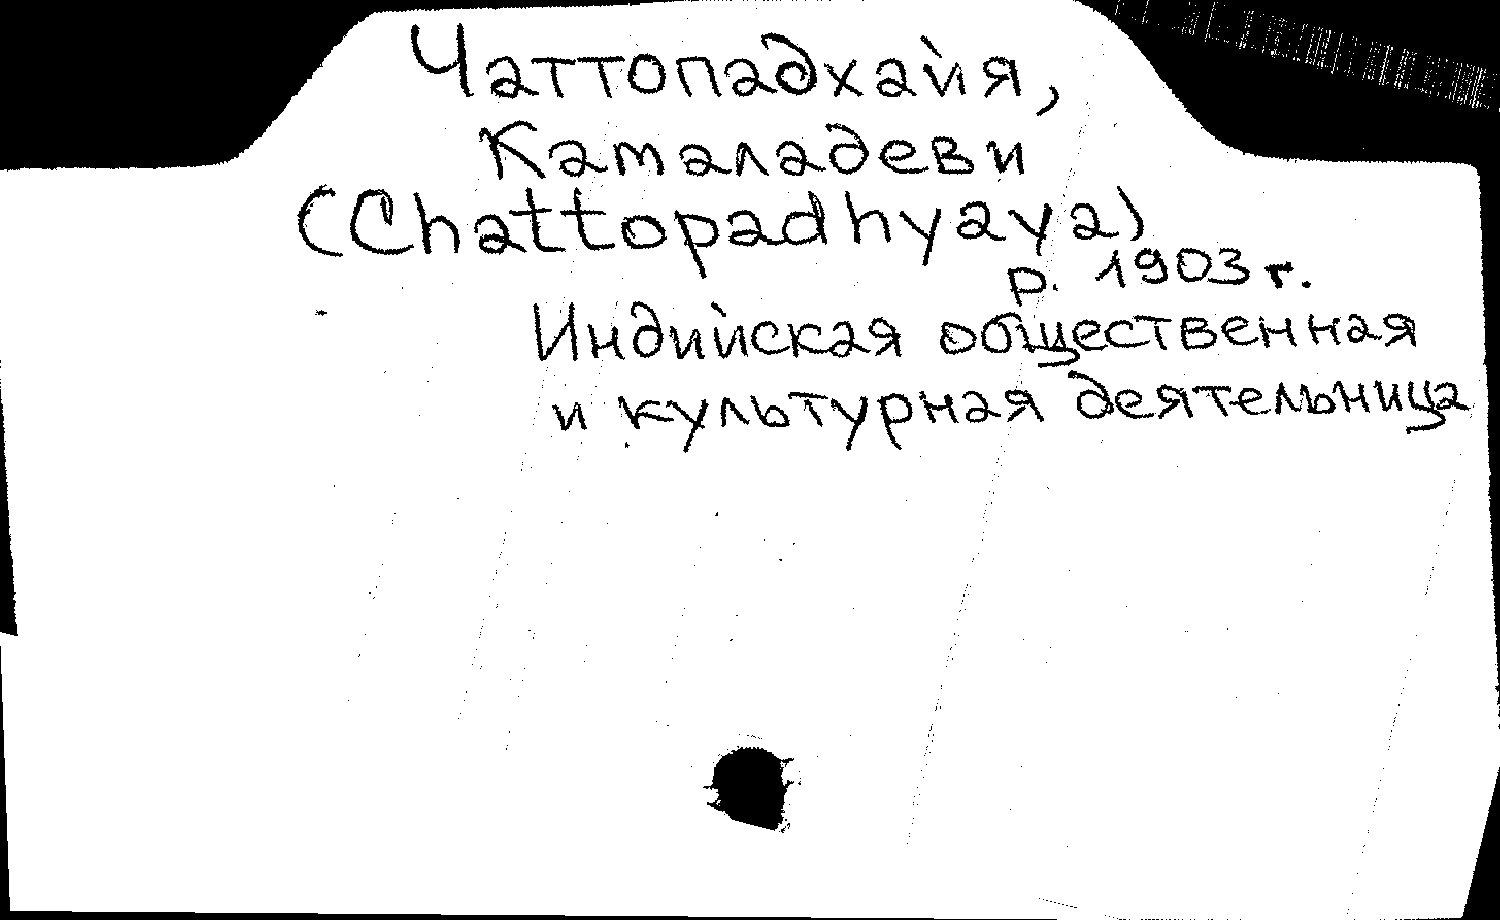 Чаттопадхайя,
Камаладеви
(Chattopadhyaya)
р. 1903 г.
Индийская общественная
и культурная деятельница